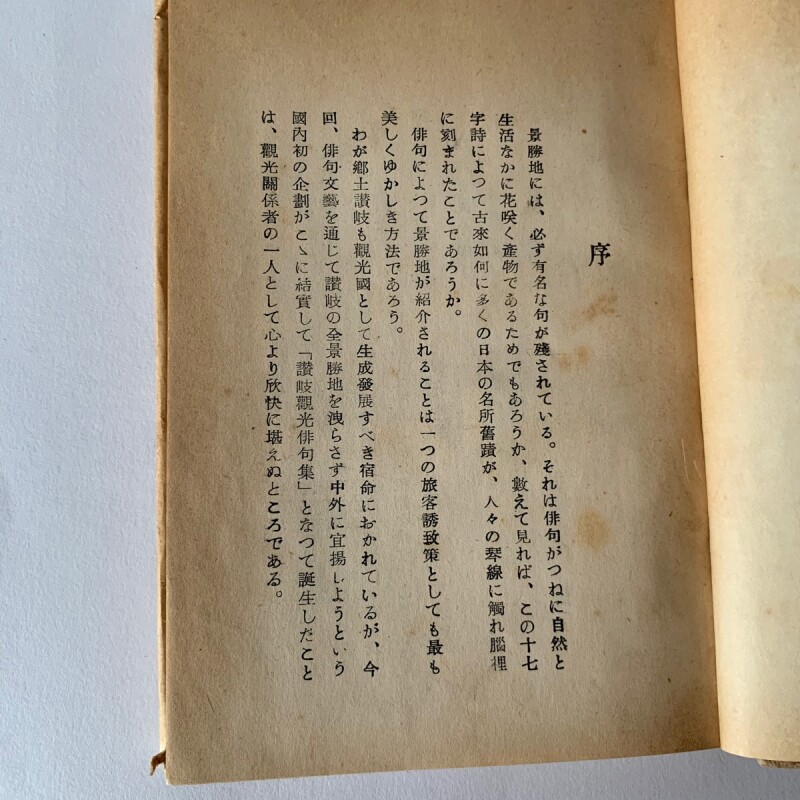 序
景勝地には、必ず有名な句が殘されている。それは俳句がつねに自然と
生活なかに花咲く產物であるためでもあろうか、數えて見れば、この十七
字詩によつて古來如何に多くの日本の名所舊蹟が、人々の琴線に觸れ腦裡
に刻まれたことであろうか。
俳句によつて景勝地が紹介されることは一つの旅客誘致策としても最も
美しくゆかしき方法であろう。
わが鄕土讃岐も觀光國として生成發展すべき宿命におかれているが、今
回、俳句文藝を通じて讃岐の全景勝地を洩らさず中外に宣揚しようという
國內初の企劃がこゝに結實して「讃岐觀光俳句集」となつて誕生したこと
は、觀光關係者の一人として心より欣快に堪えぬところである。